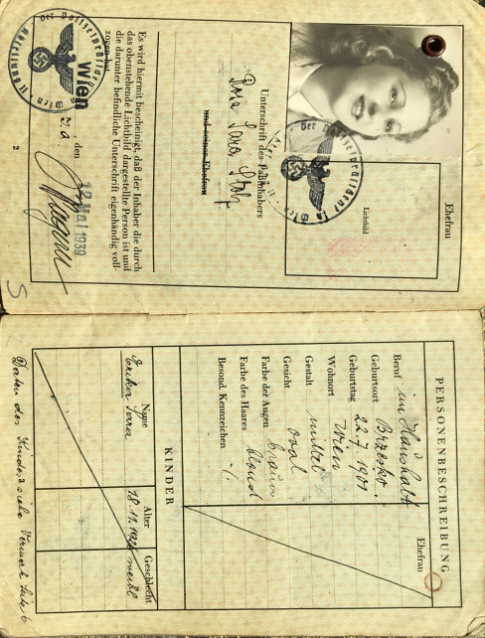 Ehefrau
Lichtbild
Unterschrift des Paßinhabers
Dora Sara Stolz
und seiner Ehefrau
Es wird hiermit bescheinigt, daß der Inhaber die durch
das obenstehende Lichtbild dargestellte Person ist und
die darunter befindliche Unterschrift eigenhändig voll-
zogen hat.
Wien
, den
12. Mai 1939
2
S
PERSONENBESCHREIBUNG
Ehefrau
Beruf im Haushalt
Geburtsort
Geburtstag 22.7.1901
Wohnort Wien
Gestalt mittel
Gesicht oval
Farbe der Augen braun
Farbe des Haares blond
Besond. Kennzeichen ./.
KINDER
Name Alter Geschlecht
Erika Sara weibl
Daten des Kindes siehe Vermerk Seite 6